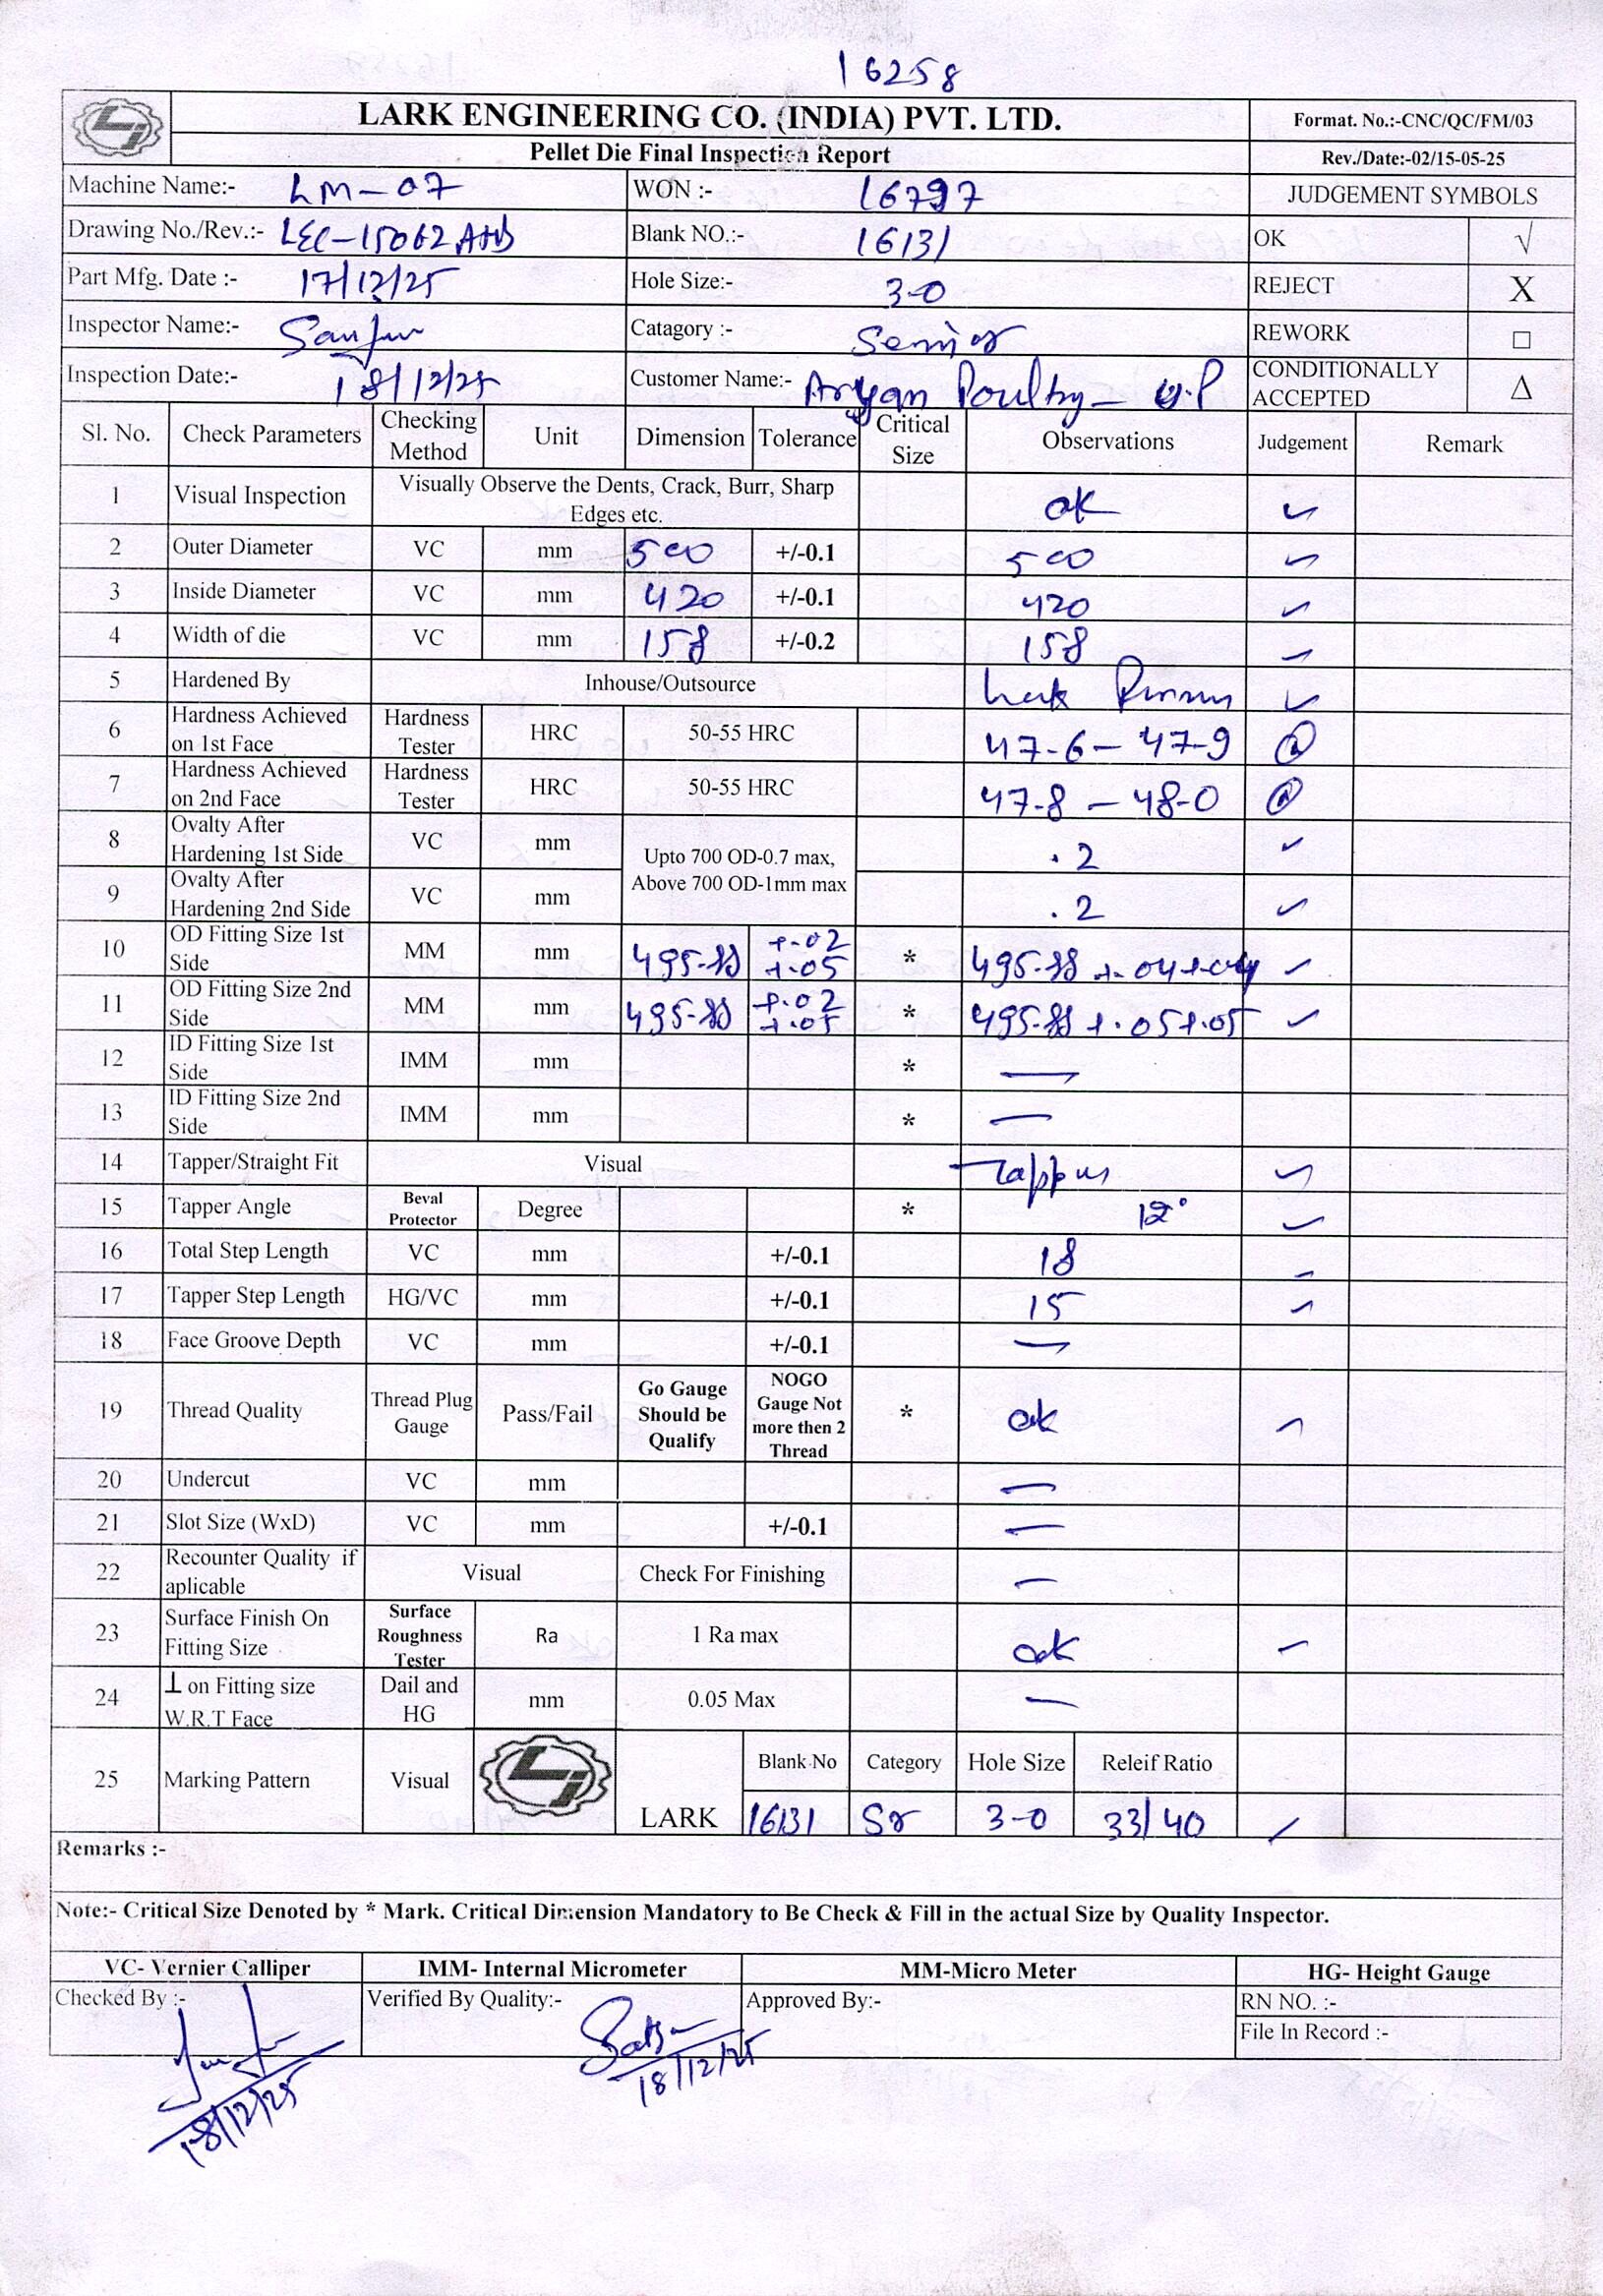 16258
LARK ENGINEERING CO. (INDIA) PVT. LTD. Format. No.:-CNC/QC/FM/03
Pellet Die Final Inspection Report Rev./Date:-02/15-05-25
Machine Name:- LM-07 WON :- 16797 JUDGEMENT SYMBOLS
Drawing No./Rev.:- LEC-15062 Blank NO.:- 16131 OK √
Part Mfg. Date :- 17/12/25 Hole Size:- 3-0 REJECT X
Inspector Name:- Catagory :- Senior REWORK □
Inspection Date:- 18/12/25 Customer Name:- Aryan Poultry - U.P CONDITIONALLY ACCEPTED Δ
Sl. No. Check Parameters Checking Method Unit Dimension Tolerance Critical Size Observations Judgement Remark
1 Visual Inspection Visually Observe the Dents, Crack, Burr, Sharp Edges etc. ok ✓
2 Outer Diameter VC mm 500 +/-0.1 500 ✓
3 Inside Diameter VC mm 420 +/-0.1 420 ✓
4 Width of die VC mm 158 +/-0.2 158 ✓
5 Hardened By Inhouse/Outsource Lark ✓
6 Hardness Achieved on 1st Face Hardness Tester HRC 50-55 HRC 47-6 - 47-9
7 Hardness Achieved on 2nd Face Hardness Tester HRC 50-55 HRC 47-8 - 48-0
8 Ovalty After Hardening 1st Side VC mm Upto 700 OD-0.7 max, Above 700 OD-1mm max .2 ✓
9 Ovalty After Hardening 2nd Side VC mm .2 ✓
10 OD Fitting Size 1st Side MM mm 495-88 +.02 +.05 * 495-88 +.04+.04 ✓
11 OD Fitting Size 2nd Side MM mm 495-88 +.02 +.05 * 495-88 +.05+.05 ✓
12 ID Fitting Size 1st Side IMM mm * —
13 ID Fitting Size 2nd Side IMM mm * —
14 Tapper/Straight Fit Visual Tapper ✓
15 Tapper Angle Beval Protector Degree * 12° ✓
16 Total Step Length VC mm +/-0.1 18 ✓
17 Tapper Step Length HG/VC mm +/-0.1 15 ✓
18 Face Groove Depth VC mm +/-0.1 —
19 Thread Quality Thread Plug Gauge Pass/Fail Go Gauge Should be Qualify NOGO Gauge Not more then 2 Thread * ok ✓
20 Undercut VC mm —
21 Slot Size (WxD) VC mm +/-0.1 —
22 Recounter Quality if aplicable Visual Check For Finishing —
23 Surface Finish On Fitting Size Surface Roughness Tester Ra 1 Ra max ok ✓
24 ⊥ on Fitting size W.R.T Face Dail and HG mm 0.05 Max —
25 Marking Pattern Visual LARK Blank No Category Hole Size Releif Ratio
16131 Sr 3-0 33/40 ✓
Remarks :-
Note:- Critical Size Denoted by * Mark. Critical Dimension Mandatory to Be Check & Fill in the actual Size by Quality Inspector.
VC- Vernier Calliper IMM- Internal Micrometer MM-Micro Meter HG- Height Gauge
Checked By :- Verified By Quality:- Approved By:- RN NO. :-
File In Record :-
18/12/25 18/12/25